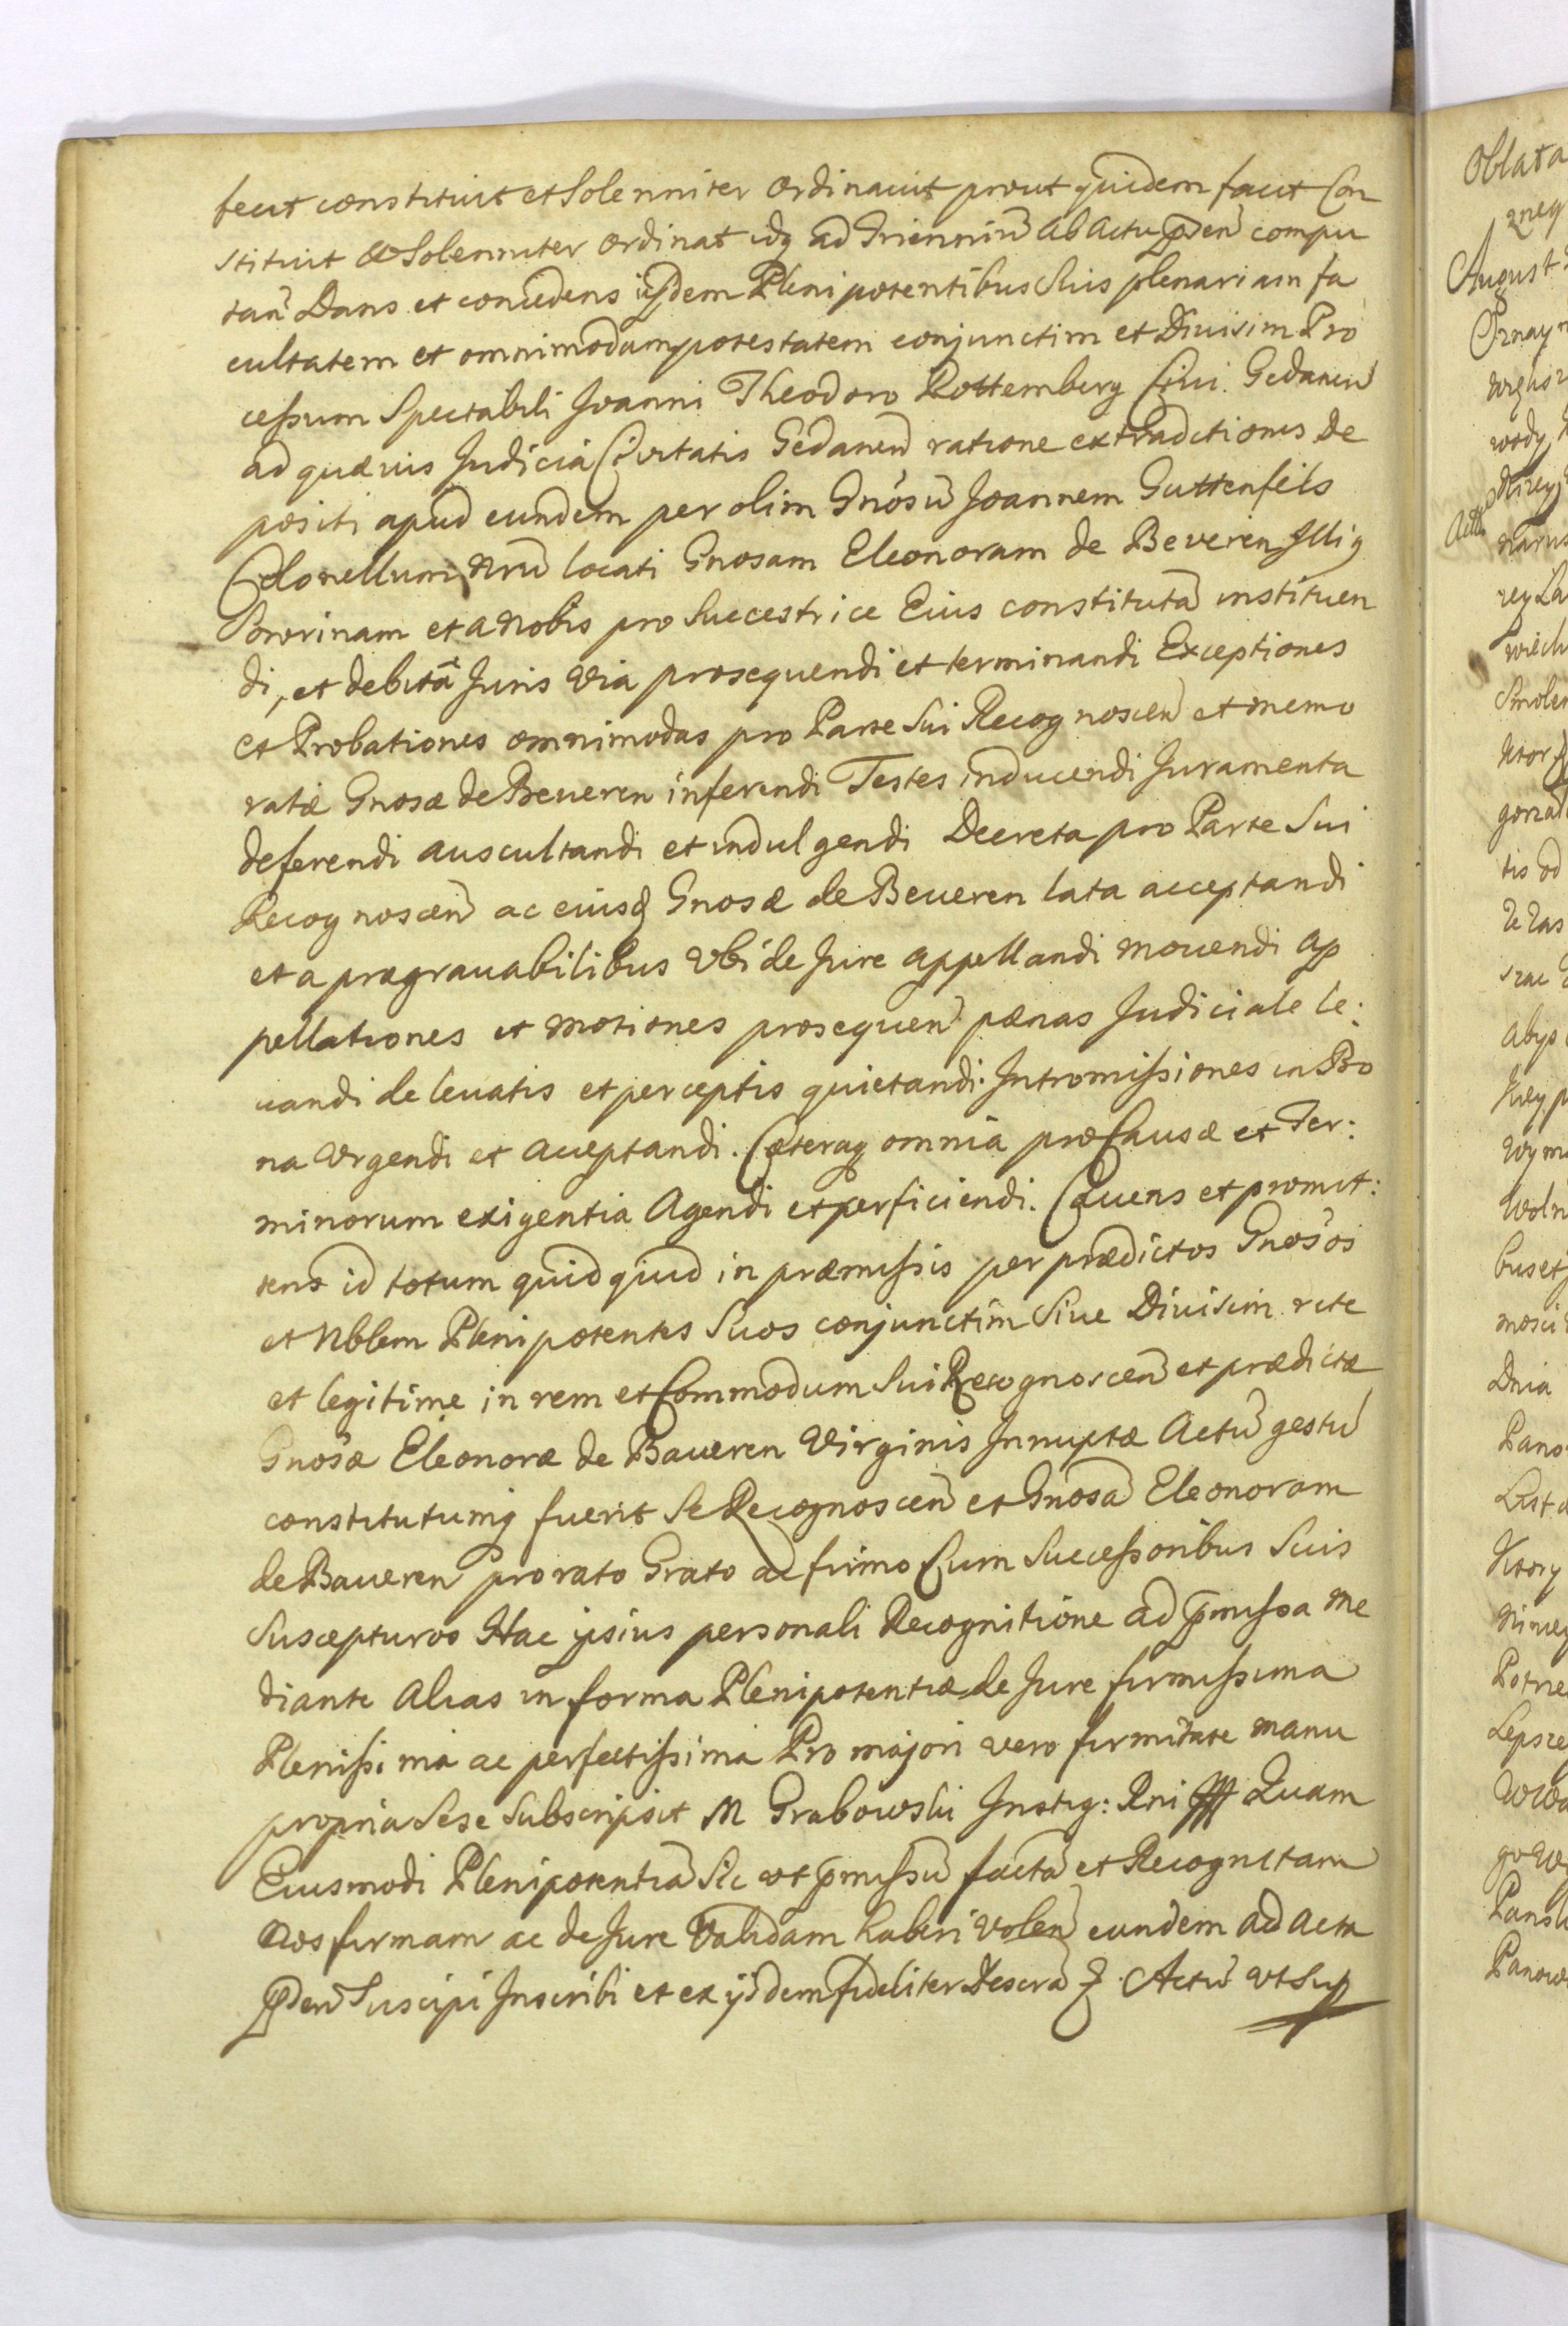 fecit constituit et Solenniter Ordinavit prout quidem facit Con
stituit & Solenniter Ordinat idq ad Trienniũ Ab Actu p̃sen̄ compu
tan̄ Dans et concedens ijsdem Plenipotentibus Suis plenariam fa
cultatem et omnimodamq potestatem conjunctim et Diuisim Pro
cessum Spectabili Joanni Theodoro Rottemberg Ciui Gedanen̄
ad quæuis Judicia Ciuitatis Gedanen̄ ratione extraditionis De
positi apud eundem per olim Gnosũ Joannem Guttenfels
Colonellum Nrũ locati Gnosam Eleonoram de Beveren Illiq
et a Nobis pro Succestrice Eius constitutã instituen
di, et debitâ Juris Via prosequendi et terminandi Exceptiones
et Probationes omnimodas pro Parte Sui Recognoscen̄ et memo
ratæ Gnosæ de Beueren inferendi Testes inducendi Juramenta
deferendi auscultandi et indulgendi Decreta pro Parte Sui
Recognoscen̄ ac eiusd Gnosæ de Beueren lata acceptandi
et a prægrauabilibus Vbi de Jure appellandi mouendi Ap
pellationes et motiones prosequen̄ pænas Judiciale le:
uandi de leuatis et perceptis quietandi. Intromissiones in Bo
na Vrgendi et Acceptandi. Cæteraq omnia pro Causæ et Ter:
minorum exigentia Agendi et perficiendi. Cauens et promit:
tens id totum quidquid in præmissis per prædictos Gnosos
et Nblem Plenipotentes Suos conjunctim Siue Diuisim rite
et legitime in rem et Commodum Sui Recognoscen̄ et prædictæ
Gnosæ Eleonoræ de Baueren Virginis Innuptæ Actũ gestũ
constitutumq fuerit Se Recognoscen̄ et Gnosã Eleonoram
de Baueren pro rato Grato ac firmo Cum Successoribus Suis
Suscepturos Hac ipsius personali Recognitione ad p̃missa Me
diante Alias in forma Plenipotentiæ de Jure firmissima
Plenissima ac perfectissima Pro majori vero firmitate manu
propria Sese Subscripsit M Grabowski Instig: Rni Quam
Eiusmodi Plenipotentiã Sic vt p̃missũ factã et Recognitam
Nos firmam ac de Jure Validam haberi Volen̄ eundem ad Acta
p̃sen̄ Suscipi Inscribi et ex ijsdem fideliter Actũ vt Sup
Oblata
August
wody
Actũ
Smolen
gorzał
tis od
Abys
Wym
Woln
buset
Dnia
List
Ktory
Potrze
Lepsze